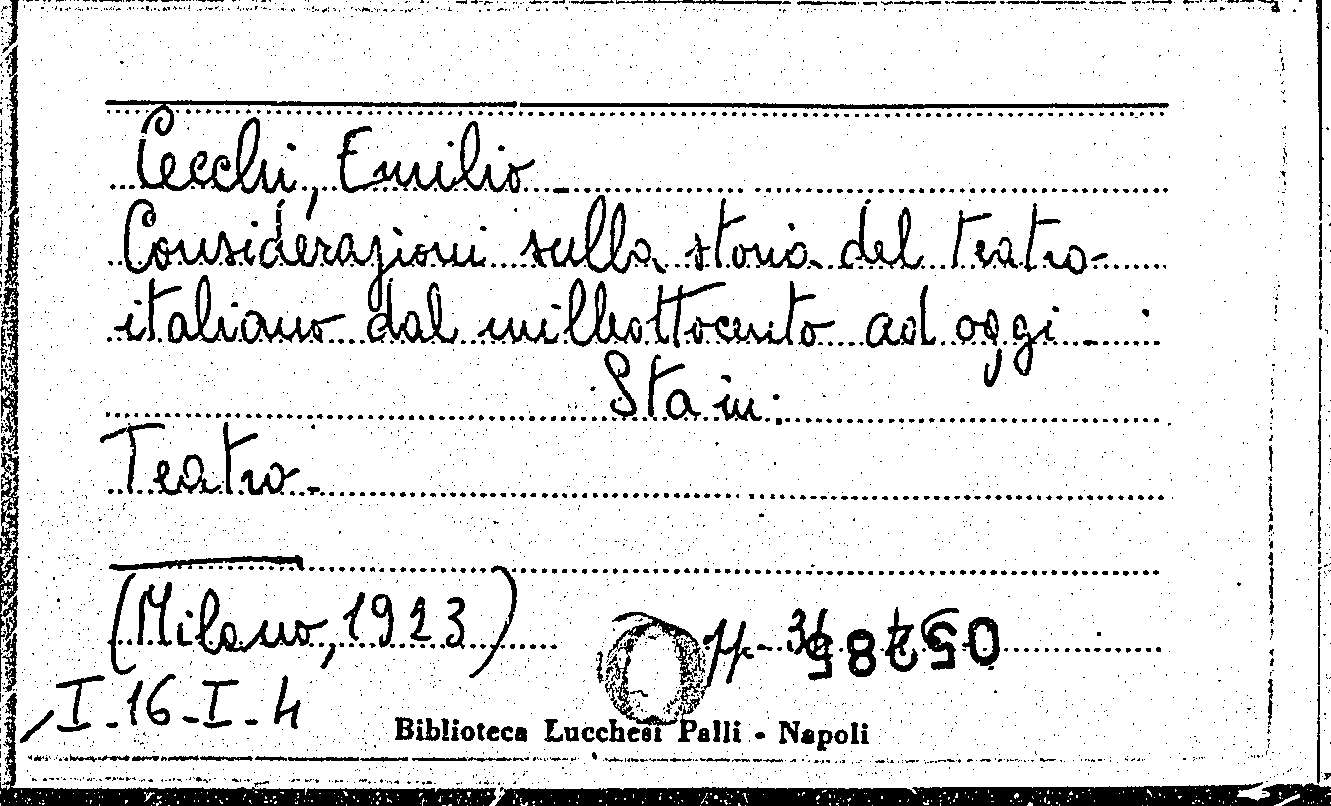 Cecchi, Emilio -
Considerazioni sulla storia del teatro
italiano dal milleottocento ad oggi -
Sta in:
Teatro -
(Milano, 1923)
pp. 05285
I-16-I-4
Biblioteca Lucchesi Palli - Napoli